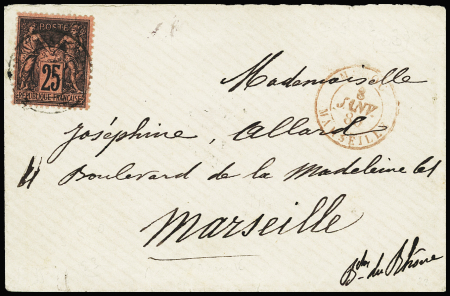 POSTE
25
REPUBLIQUE FRANCAISE
Mademoiselle
8
JANV
MARSEILLE
Joséphine Allard
Boulevard de la Madeleine 61
Marseille
Bches du Rhône